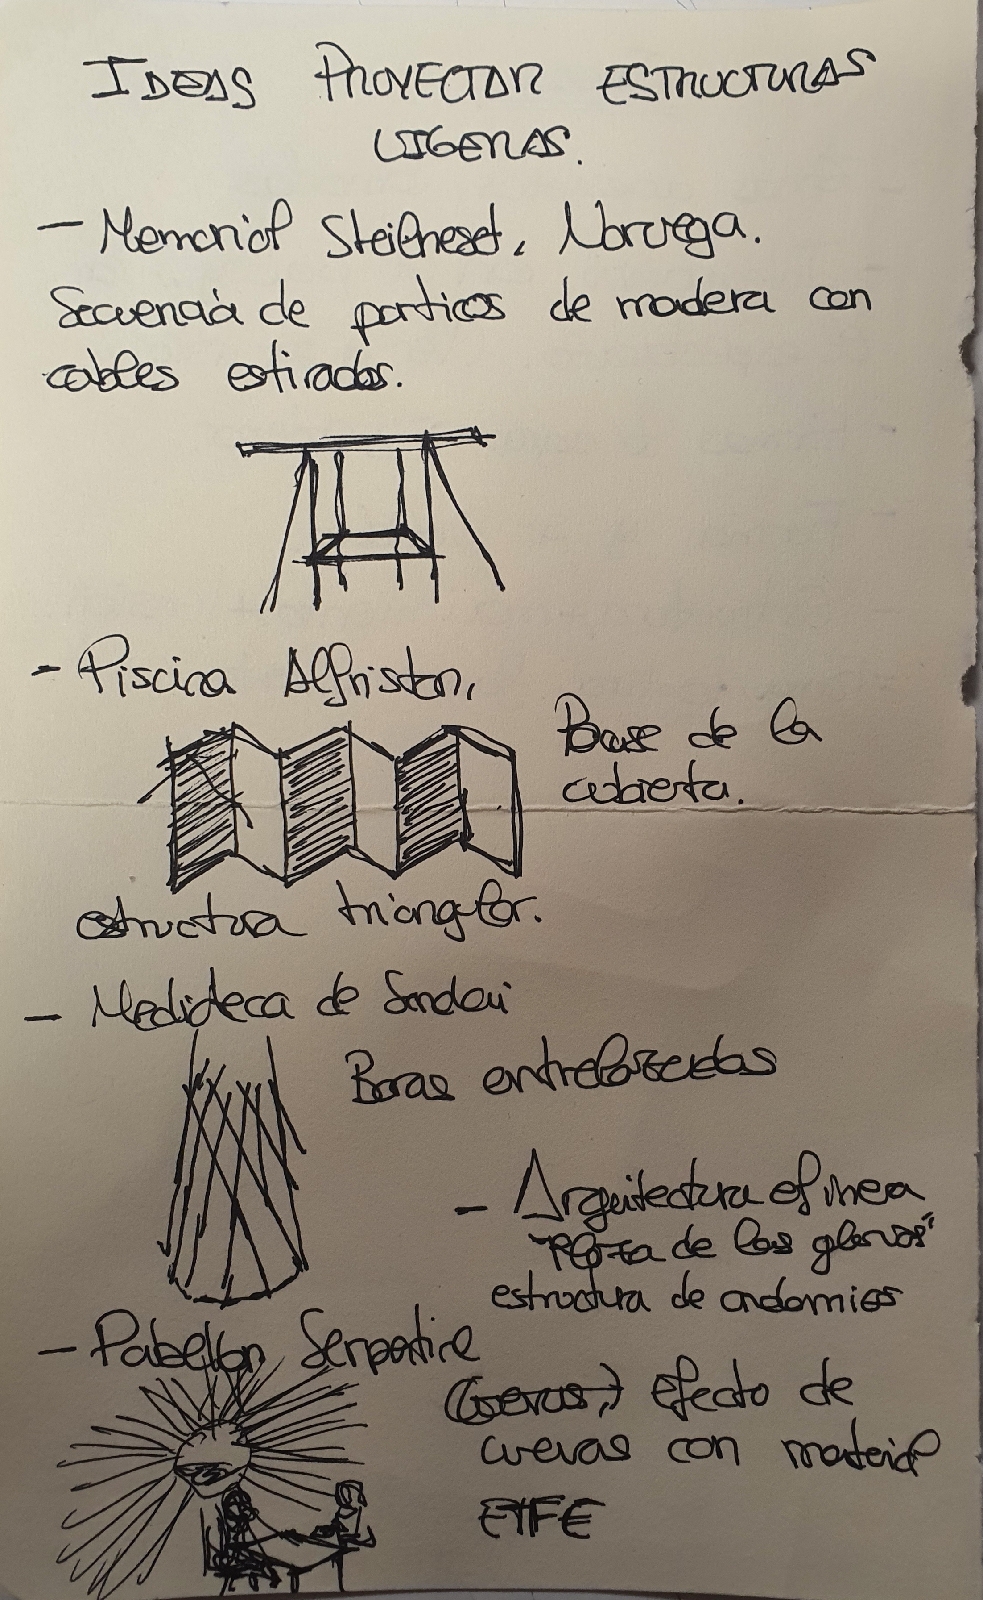 IDEAS PROYECTAR ESTRUCTURAS
LIGERAS.
- Memorial Steilneset, Noruega.
Secuencia de porticos de madera con
cables estirados.
- Piscina Alfriston,
Base de la
cubierta.
estructura triangular.
- Mediateca de Sendai
Baras entrelazadas
- Arquitectura efimera
"Plaza de las glorias"
estructura de andamios
- Pabellon Serpentine
(cuevas,) efecto de
cuevas con material
ETFE